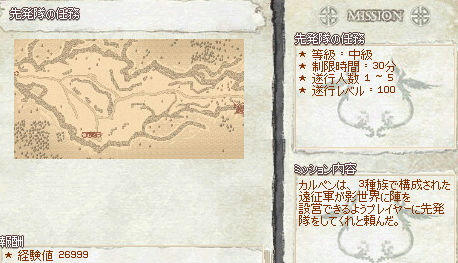 先発隊の任務
報酬
★ 経験値 26999
MISSION
先発隊の任務
★ 等級 : 中級
★ 制限時間 : 30分
★ 遂行人数 1 ~ 5
★ 遂行レベル : 100
ミッション内容
カルペンは、3種族で構成された
遠征軍が影世界に陣を
設営できるようプレイヤーに先発
隊をしてくれと頼んだ。